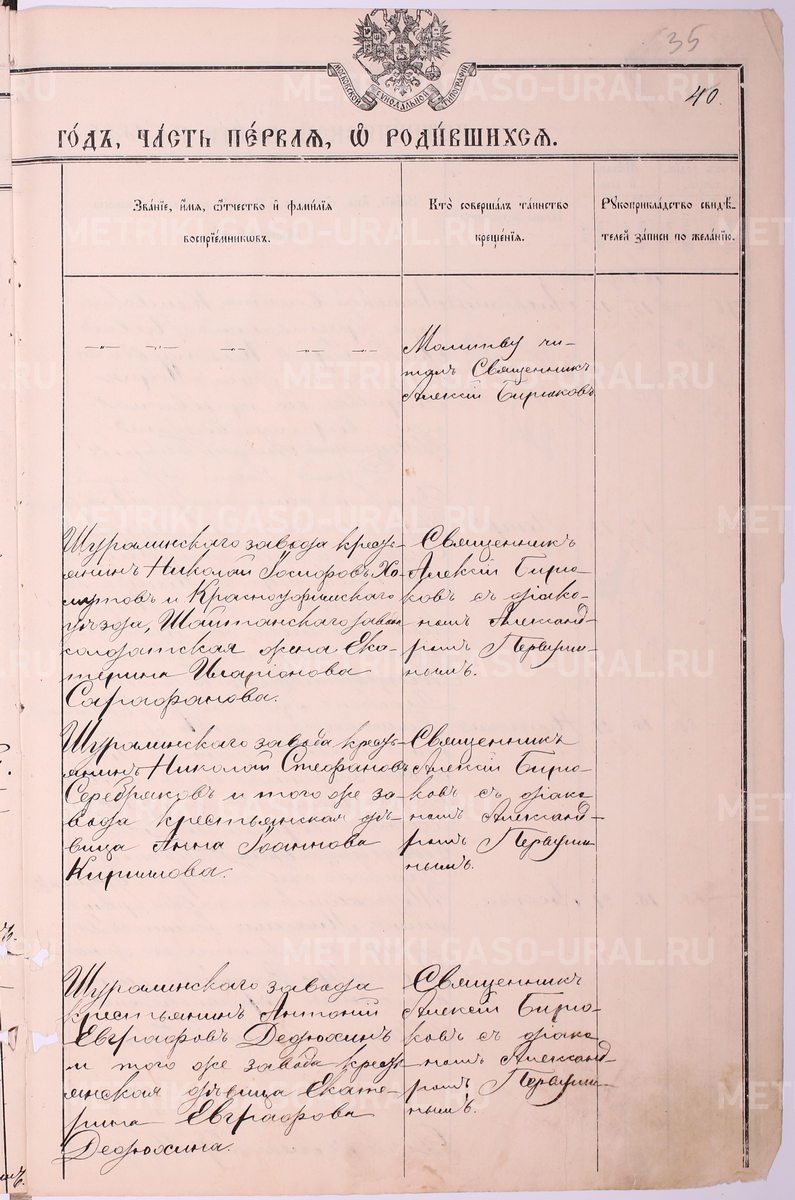 35
40.
МОСКОВСКОЙ СѴНОДАЛЬНОЙ ТИПОГРАФІИ
ГО́ДЪ, ЧА́СТЬ ПЕ́РВАЯ, Ѿ РОДИ́ВШИХСЯ.
Зва́нїе, и҆́мя, ѻ҆́тчество и҆ фами́лїя
воспрїе́мникѡвъ.
Кто̀ соверша́лъ та́инство
креще́нїя.
Рꙋкоприкла́дство свидѣ́-
телей за́писи по жела́нїю.
Молитву чи-
талъ Священникъ
Алексій Бирюковъ.
Шуралинскаго завода кресть-
янинъ Николай Іосифовъ Хо-
мутовъ и Красноуфимскаго
уѣзда, Шайтанскаго завода
солдатская жена Ека-
терина Иларіонова
Сарафанова.
Священникъ
Алексій Бирю-
ковъ съ діако-
номъ Александ-
ромъ Первуши-
нымъ.
Шуралинскаго завода кресть-
янинъ Николай Стефановъ
Серебряковъ и того же за-
вода крестьянская дѣ-
вица Анна Іоаннова
Кирилова.
Священникъ
Алексій Бирю-
ковъ съ діако-
номъ Александ-
ромъ Первуши-
нымъ.
Шуралинскаго завода
крестьянинъ Антоній
Евграфовъ Дедюхинъ
и того же завода кресть-
янская дѣвица Екате-
рина Евграфова
Дедюхина.
Священникъ
Алексій Бирю-
ковъ съ діако-
номъ Александ-
ромъ Первуши-
нымъ.
METRIKI.GASO-URAL.RU